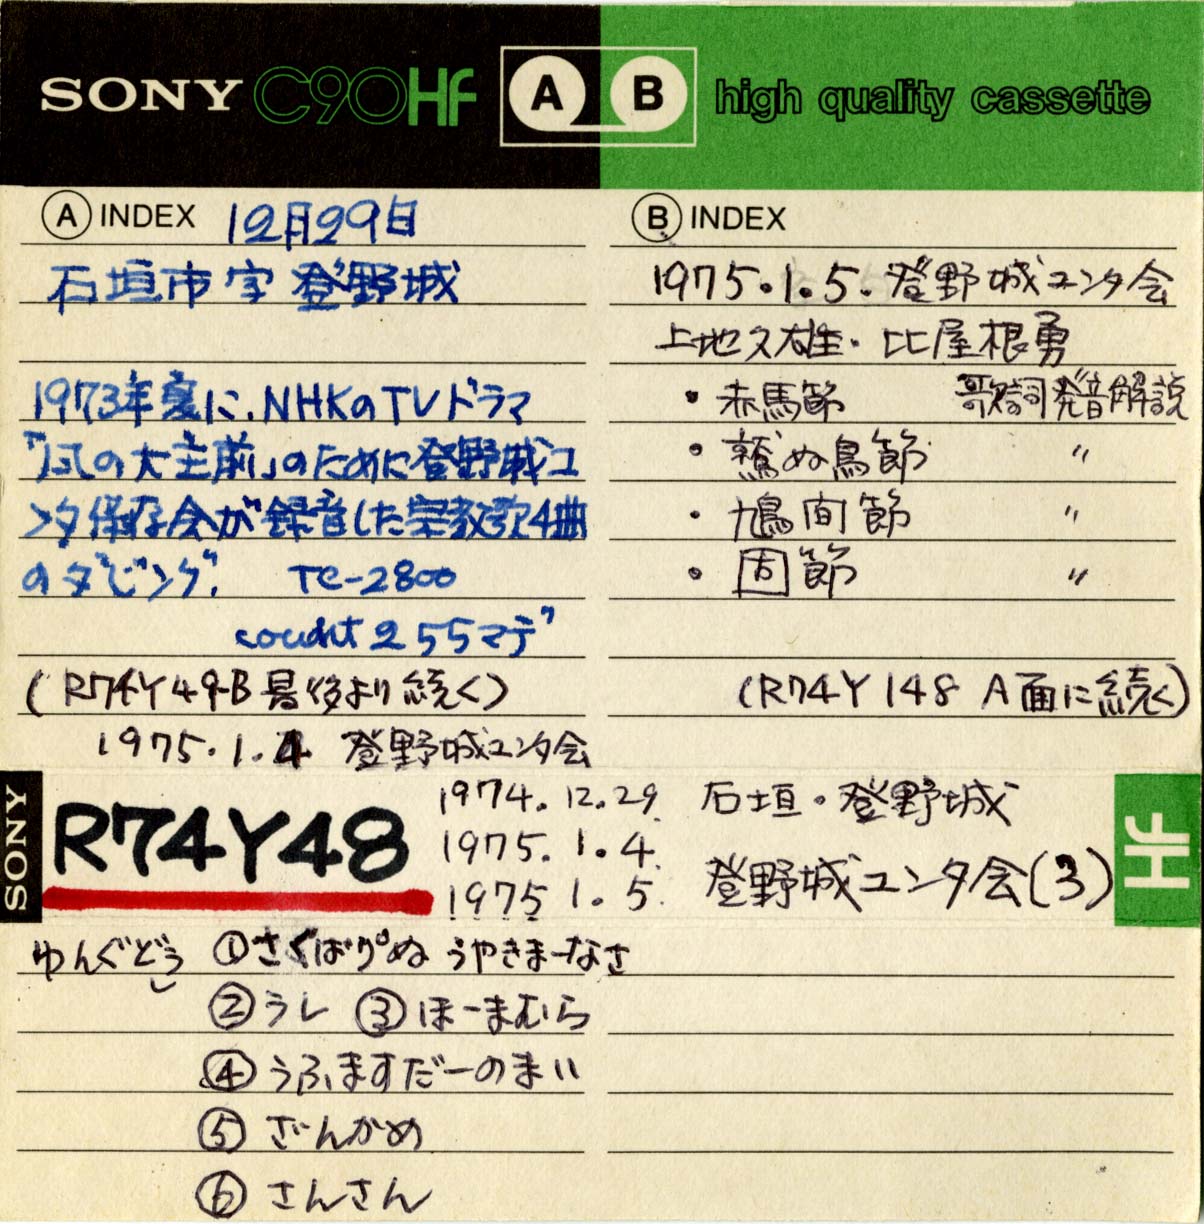 SONY C90HF A B high quality cassette
A INDEX 12月29日
石垣市字登野城
1973年夏に、NHKのTVドラマ
「風の大主前」のために登野城ユ
ンタ保存会が録音した宗教歌4曲
のダビング. TC-2800
count 255マデ
(R74Y49-B最後より続く)
1975.1.4 登野城ユンタ会
B INDEX
1975.1.5. 登野城ユンタ会
上地久雄・比屋根勇
・赤馬節 歌詞発音解説
・鷲ぬ鳥節 〃
・鳩間節 〃
・固節 〃
(R74Y148 A面に続く)
SONY
R74Y48
1974.12.29. 石垣・登野城
1975.1.4.
1975 1.5. 登野城ユンタ会(3)
HF
ゆんぐどぅ ①さぐばり゜ぬ うやきまーなさ
②うし ③ほーまむら
④うふますだーのまい
⑤ざんかめ
⑥さんさん